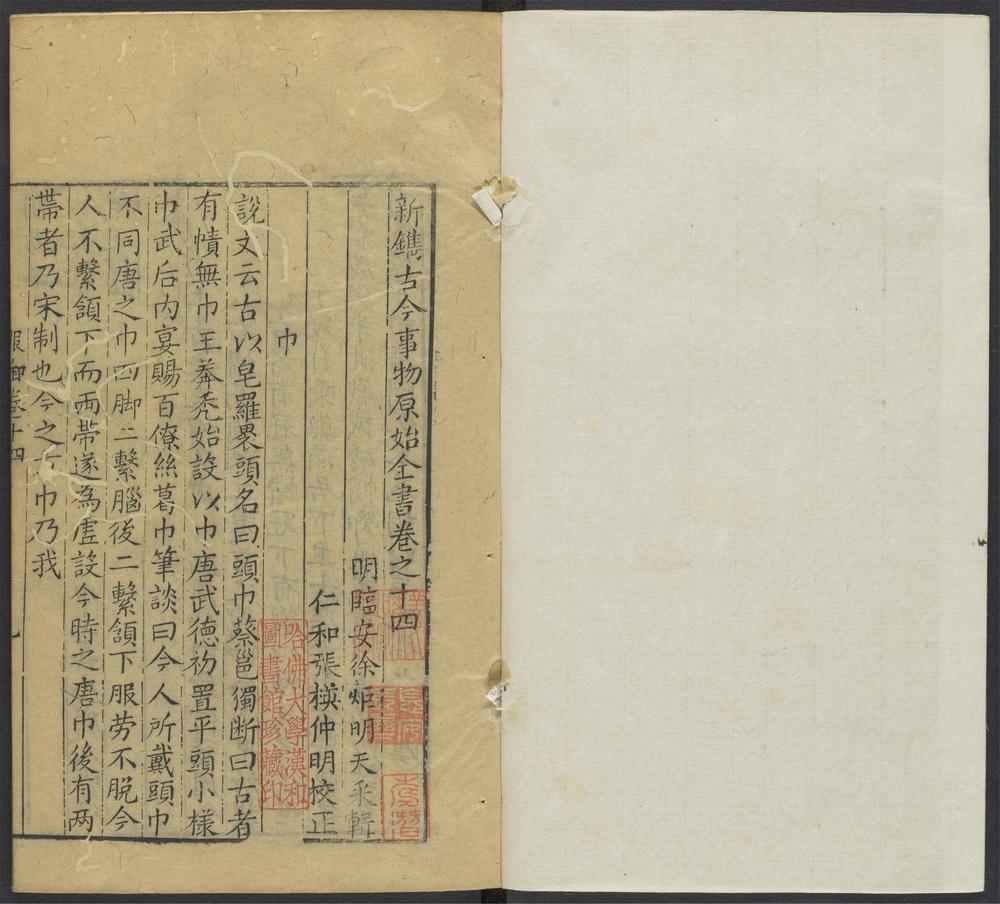 新鐫古今事物原始全書卷之十四
明臨安徐炬明天采輯
仁和張模仲明挍正
巾
說文云古以皂羅褁頭名曰頭巾蔡邕獨断曰古者
有幘無巾王莽秃始設以巾唐武德初置平頭小様
巾武后内宴賜百僚絲葛巾筆談曰今人所戴頭巾
不同唐之巾四脚二繫腦後二繫頷下服劳不脱今
人不繫頷下而兩带遂為虚設今時之唐巾後有两
帶者乃宋制也今之方巾乃我
服御卷十四
哈佛大學漢和
圖書館珍藏印